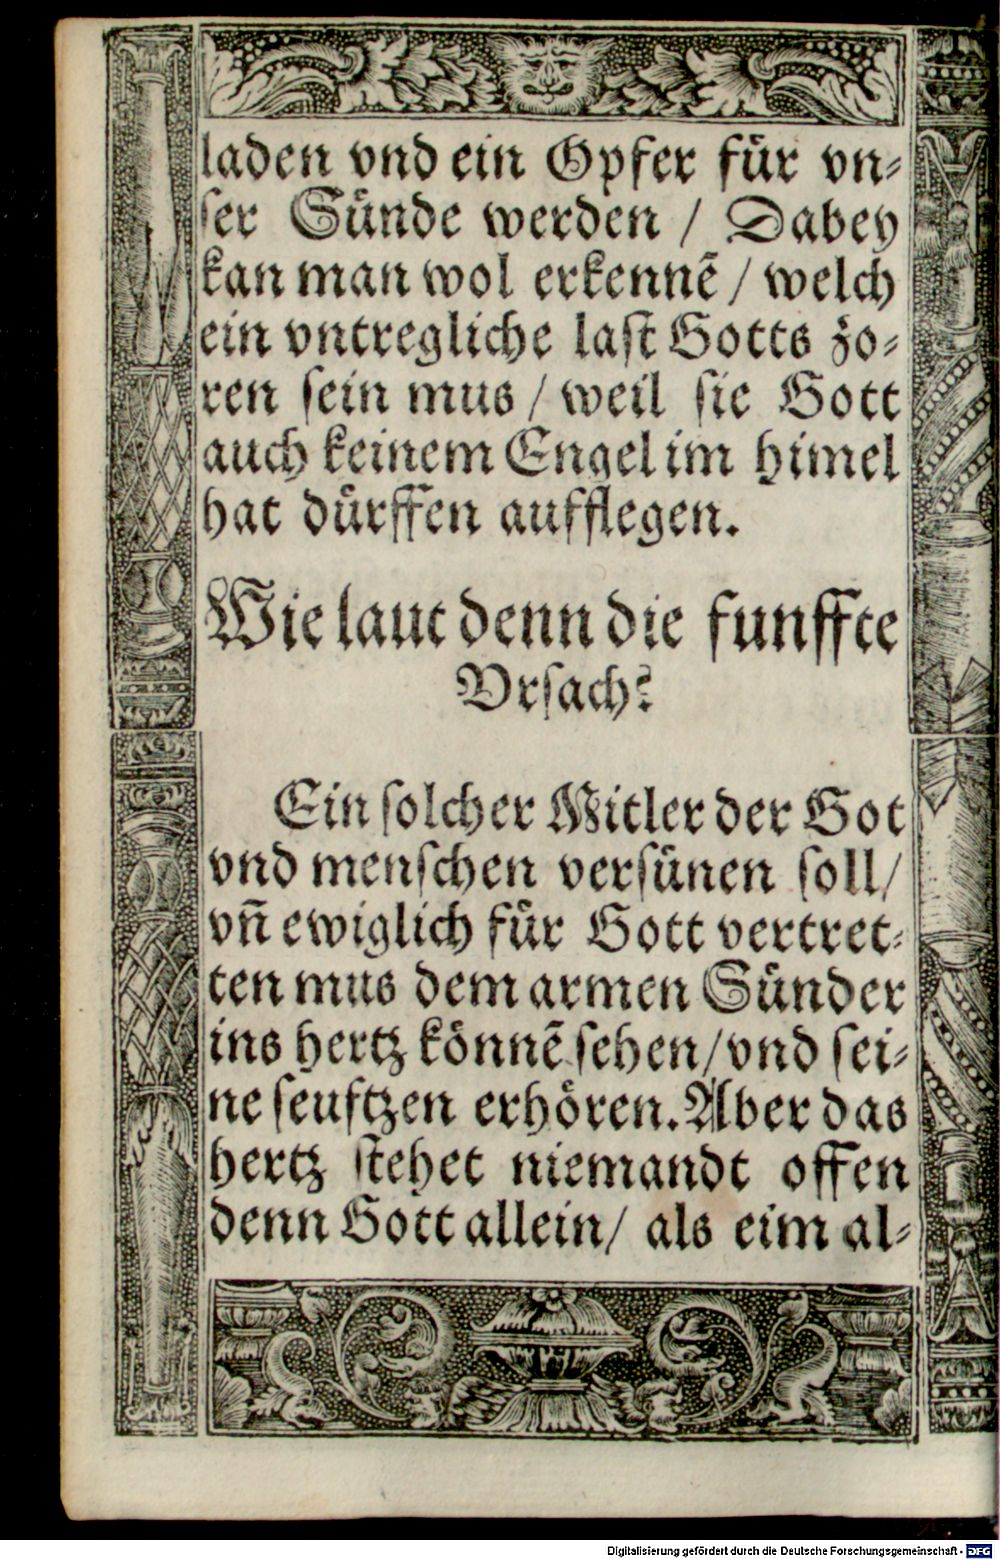 laden vnd ein Opfer für vn⸗
ser Sünde werden / Dabey
kan man wol erkennẽ / welch
ein vntregliche last Gotts zo⸗
ren sein mus / weil sie Gott
auch keinem Engel im himel
hat dürffen aufflegen.
Wie laut denn die funffte
Vrsach?
Ein solcher Mitler der Got
vnd menschen versünen soll /
vñ ewiglich für Gott vertret⸗
ten mus dem armen Sünder
ins hertz könnẽ sehen / vnd sei⸗
ne seufftzen erhören. Aber das
hertz stehet niemandt offen
denn Gott allein / als eim al⸗
Digitalisierung gefördert durch die Deutsche Forschungsgemeinschaft - DFG